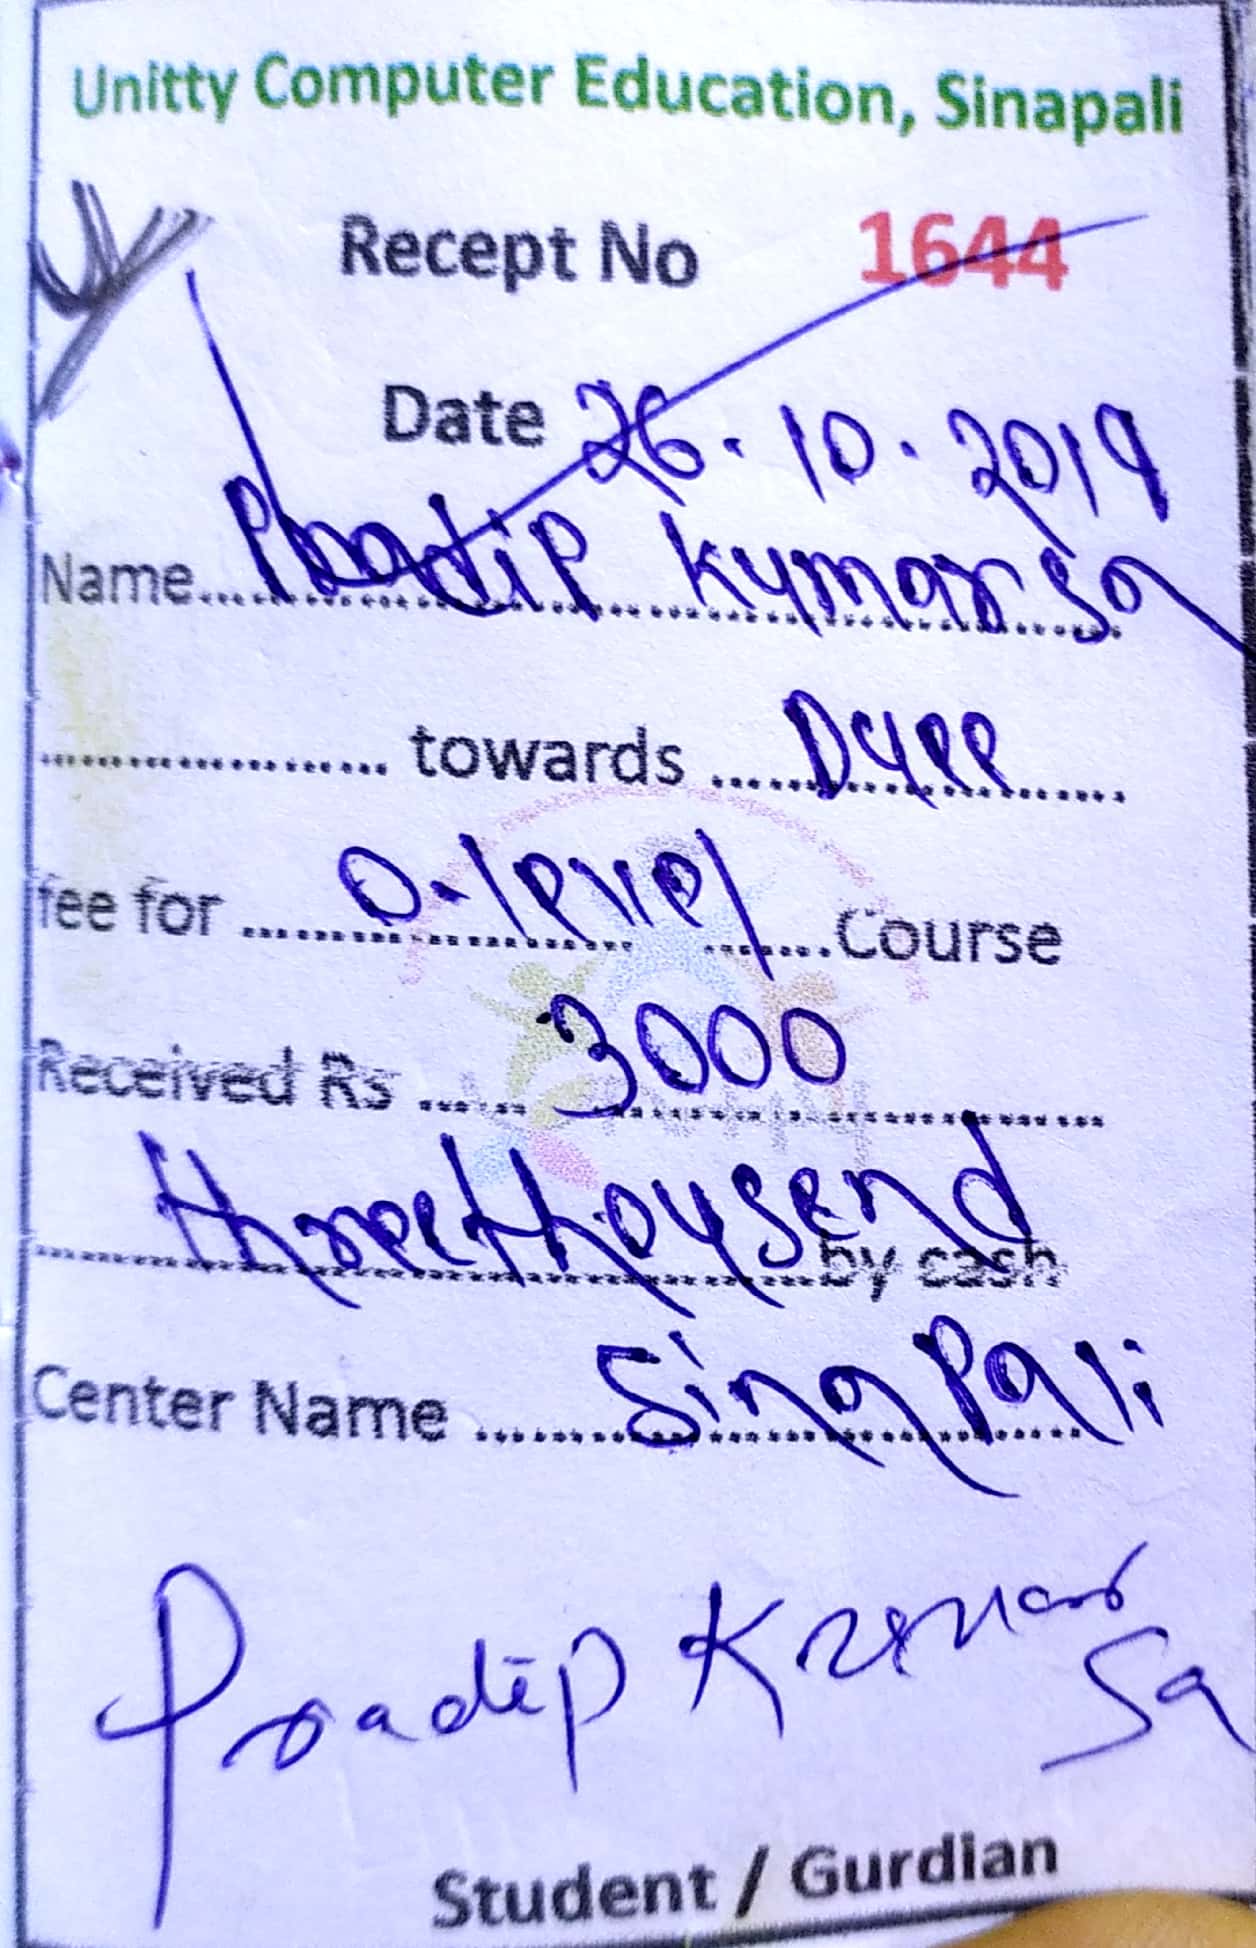 Unitty Computer Education, Sinapali
Recept No 1644
Date 26.10.2019
Name.......Pradip Kumar Sa
.................... towards .......Dyee.......
fee for .......O-level.......Course
Received Rs ...... 3000 .......
three thousend by cash
Center Name .......Sinapali
Pradip Kumar
Sa
Student / Gurdian